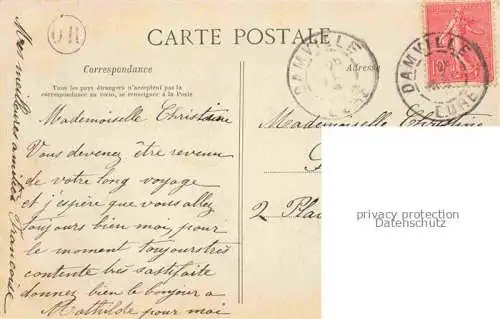 OR
CARTE POSTALE
Correspondance
Tous les pays étrangers n'acceptent pas la
correspondance au verso, se renseigner à la Poste
Adresse
DAMVILLE
EURE
DAMVILLE
EURE
Mademoiselle Christiane
Vous devenez être revenue
de votre long voyage
et j'espère que vous allez
toujours bien moi, pour
le moment toujours très
contente très sastifaite
donnez bien le bonjour a
Mathilde pour moi
Mes meilleures amitiés Françoise
Mademoiselle Christine
2 Pla
privacy protection
Datenschutz